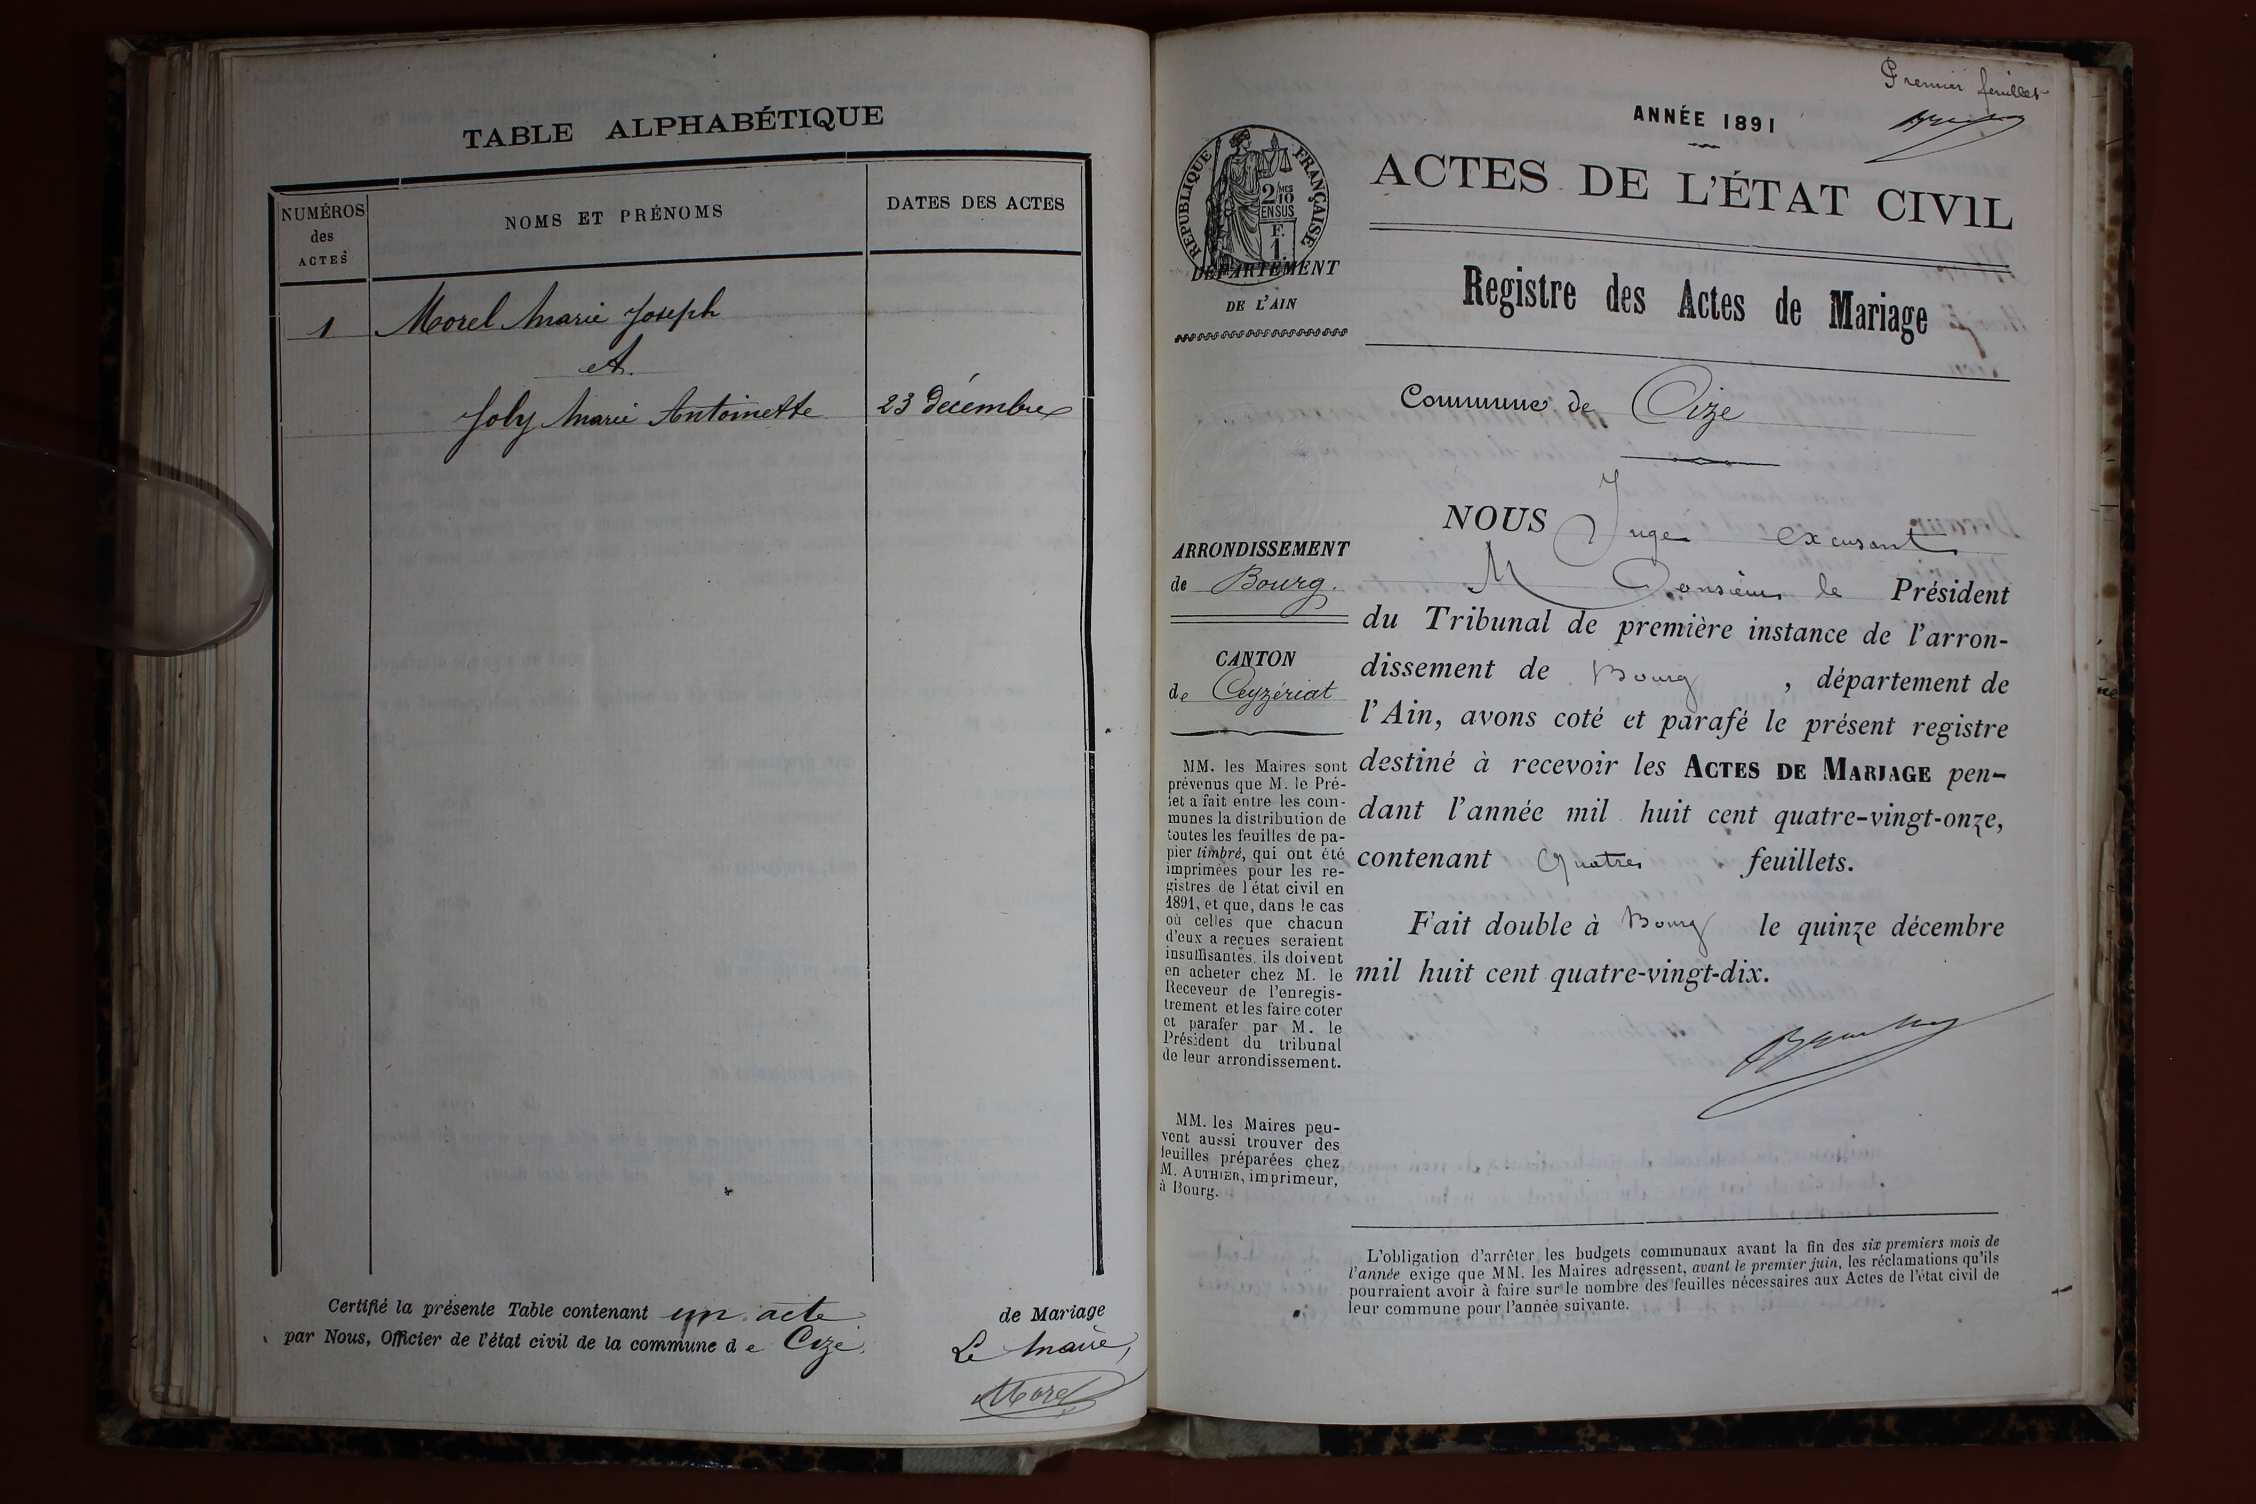 TABLE ALPHABÉTIQUE
NUMÉROS
des
ACTES
NOMS ET PRÉNOMS
DATES DES ACTES
1
Morel Marie Joseph
et
Joly Marie Antoinette
23 décembre
Certifié la présente Table contenant un acte de Mariage
par Nous, Officier de l'état civil de la commune de Cize.
Le Maire,
Morel
Premier feuillet
ANNÉE 1891
ACTES DE L'ÉTAT CIVIL
RÉPUBLIQUE FRANÇAISE
2/10 MES
EN SUS
F.
1.
DÉPARTEMENT
DE L'AIN
Registre des Actes de Mariage
Commune de Cize
ARRONDISSEMENT
de Bourg.
CANTON
de Ceyzériat
MM. les Maires sont
prévenus que M. le Pré-
fet a fait entre les com-
munes la distribution de
toutes les feuilles de pa-
pier timbré, qui ont été
imprimées pour les re-
gistres de l'état civil en
1891, et que, dans le cas
où celles que chacun
d'eux a reçues seraient
insuffisantes, ils doivent
en acheter chez M. le
Receveur de l'enregis-
trement et les faire coter
et parafer par M. le
Président du tribunal
de leur arrondissement.
MM. les Maires peu-
vent aussi trouver des
feuilles préparées chez
M. AUTHIER, imprimeur,
à Bourg.
NOUS Juge excusant
Monsieur le Président
du Tribunal de première instance de l'arron-
dissement de Bourg, département de
l'Ain, avons coté et parafé le présent registre
destiné à recevoir les ACTES DE MARIAGE pen-
dant l'année mil huit cent quatre-vingt-onze,
contenant quatre feuillets.
Fait double à Bourg le quinze décembre
mil huit cent quatre-vingt-dix.
L'obligation d'arrêter les budgets communaux avant la fin des six premiers mois de
l'année exige que MM. les Maires adressent, avant le premier juin, les réclamations qu'ils
pourraient avoir à faire sur le nombre des feuilles nécessaires aux Actes de l'état civil de
leur commune pour l'année suivante.